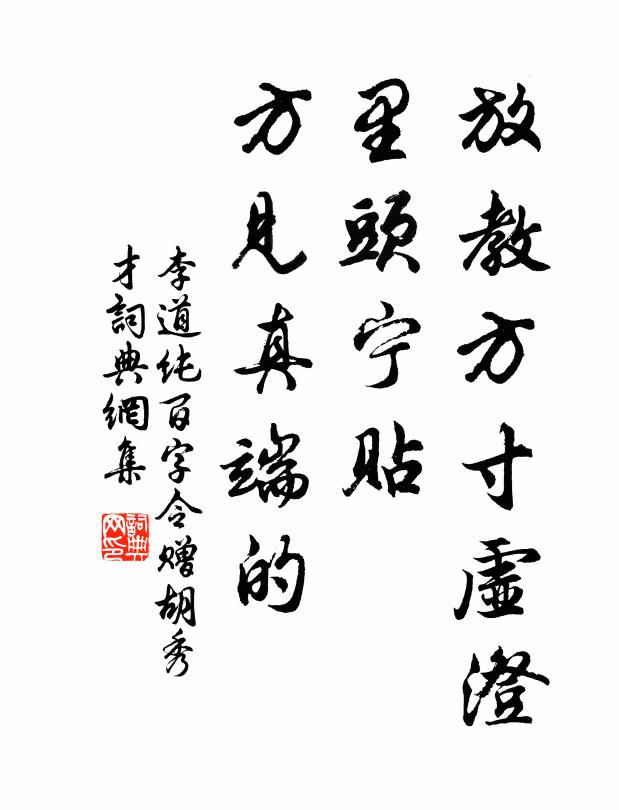 放教方寸虛澄
里頭宁貼
方見真端的
李道纯百字令赠胡秀
才詞典網集
詞典
网印